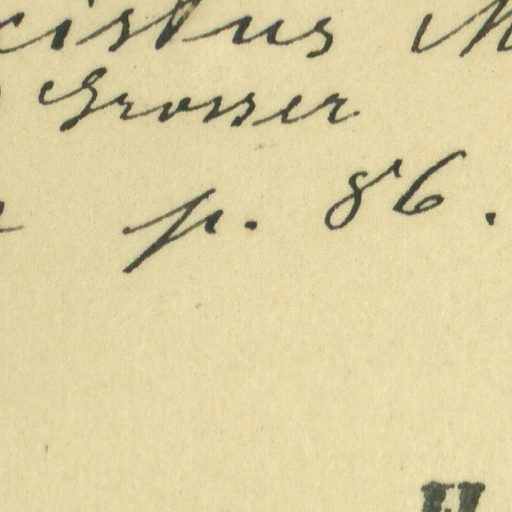 cistus M
Grosser
p. 86.
H